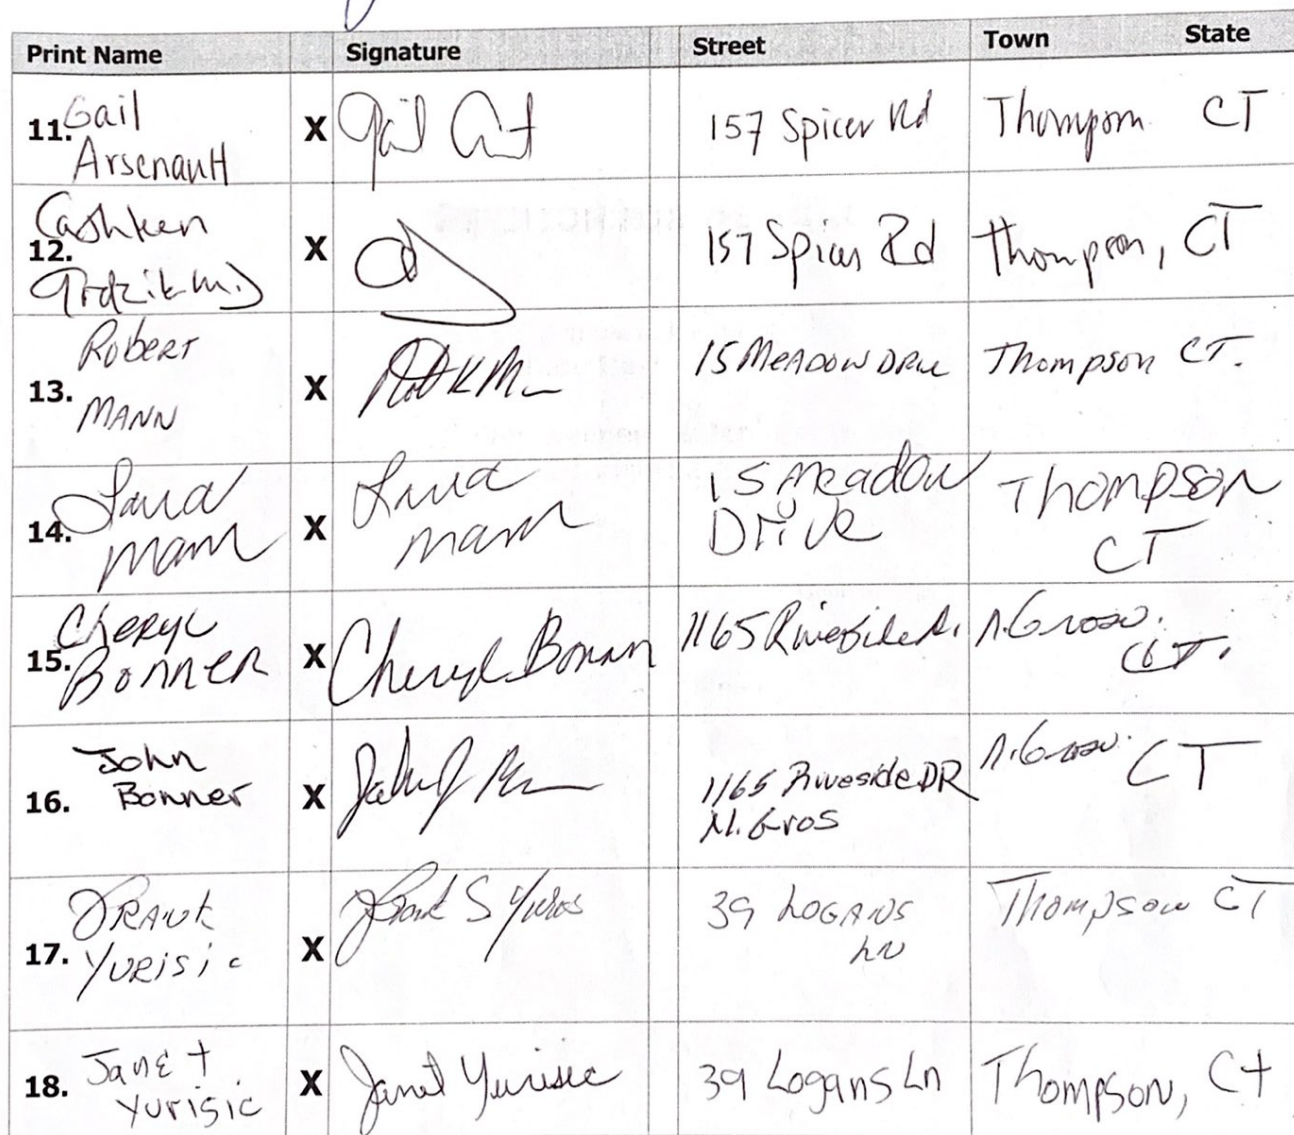 Print Name Signature Street Town State
11. Gail Arsenault X 157 Spicer Rd Thompson CT
12. X 157 Spicer Rd Thompson, CT
13. Robert MANN X 15 MEADOW DRIVE Thompson CT.
14. Mann X Mann 15 Meadow Drive Thompson CT
15. Cheryl BONNER X Cheryl Bonner 1165 Riverside Dr. N. Grosv. CT.
16. John Bonner X 1165 Riveside DR N. Gros N. Grosv. CT
17. FRANK YURISIC X Frank S 39 LOGANS LN Thompson CT
18. Janet Yurisic X Janet Yurisic 39 Logans Ln Thompson, Ct